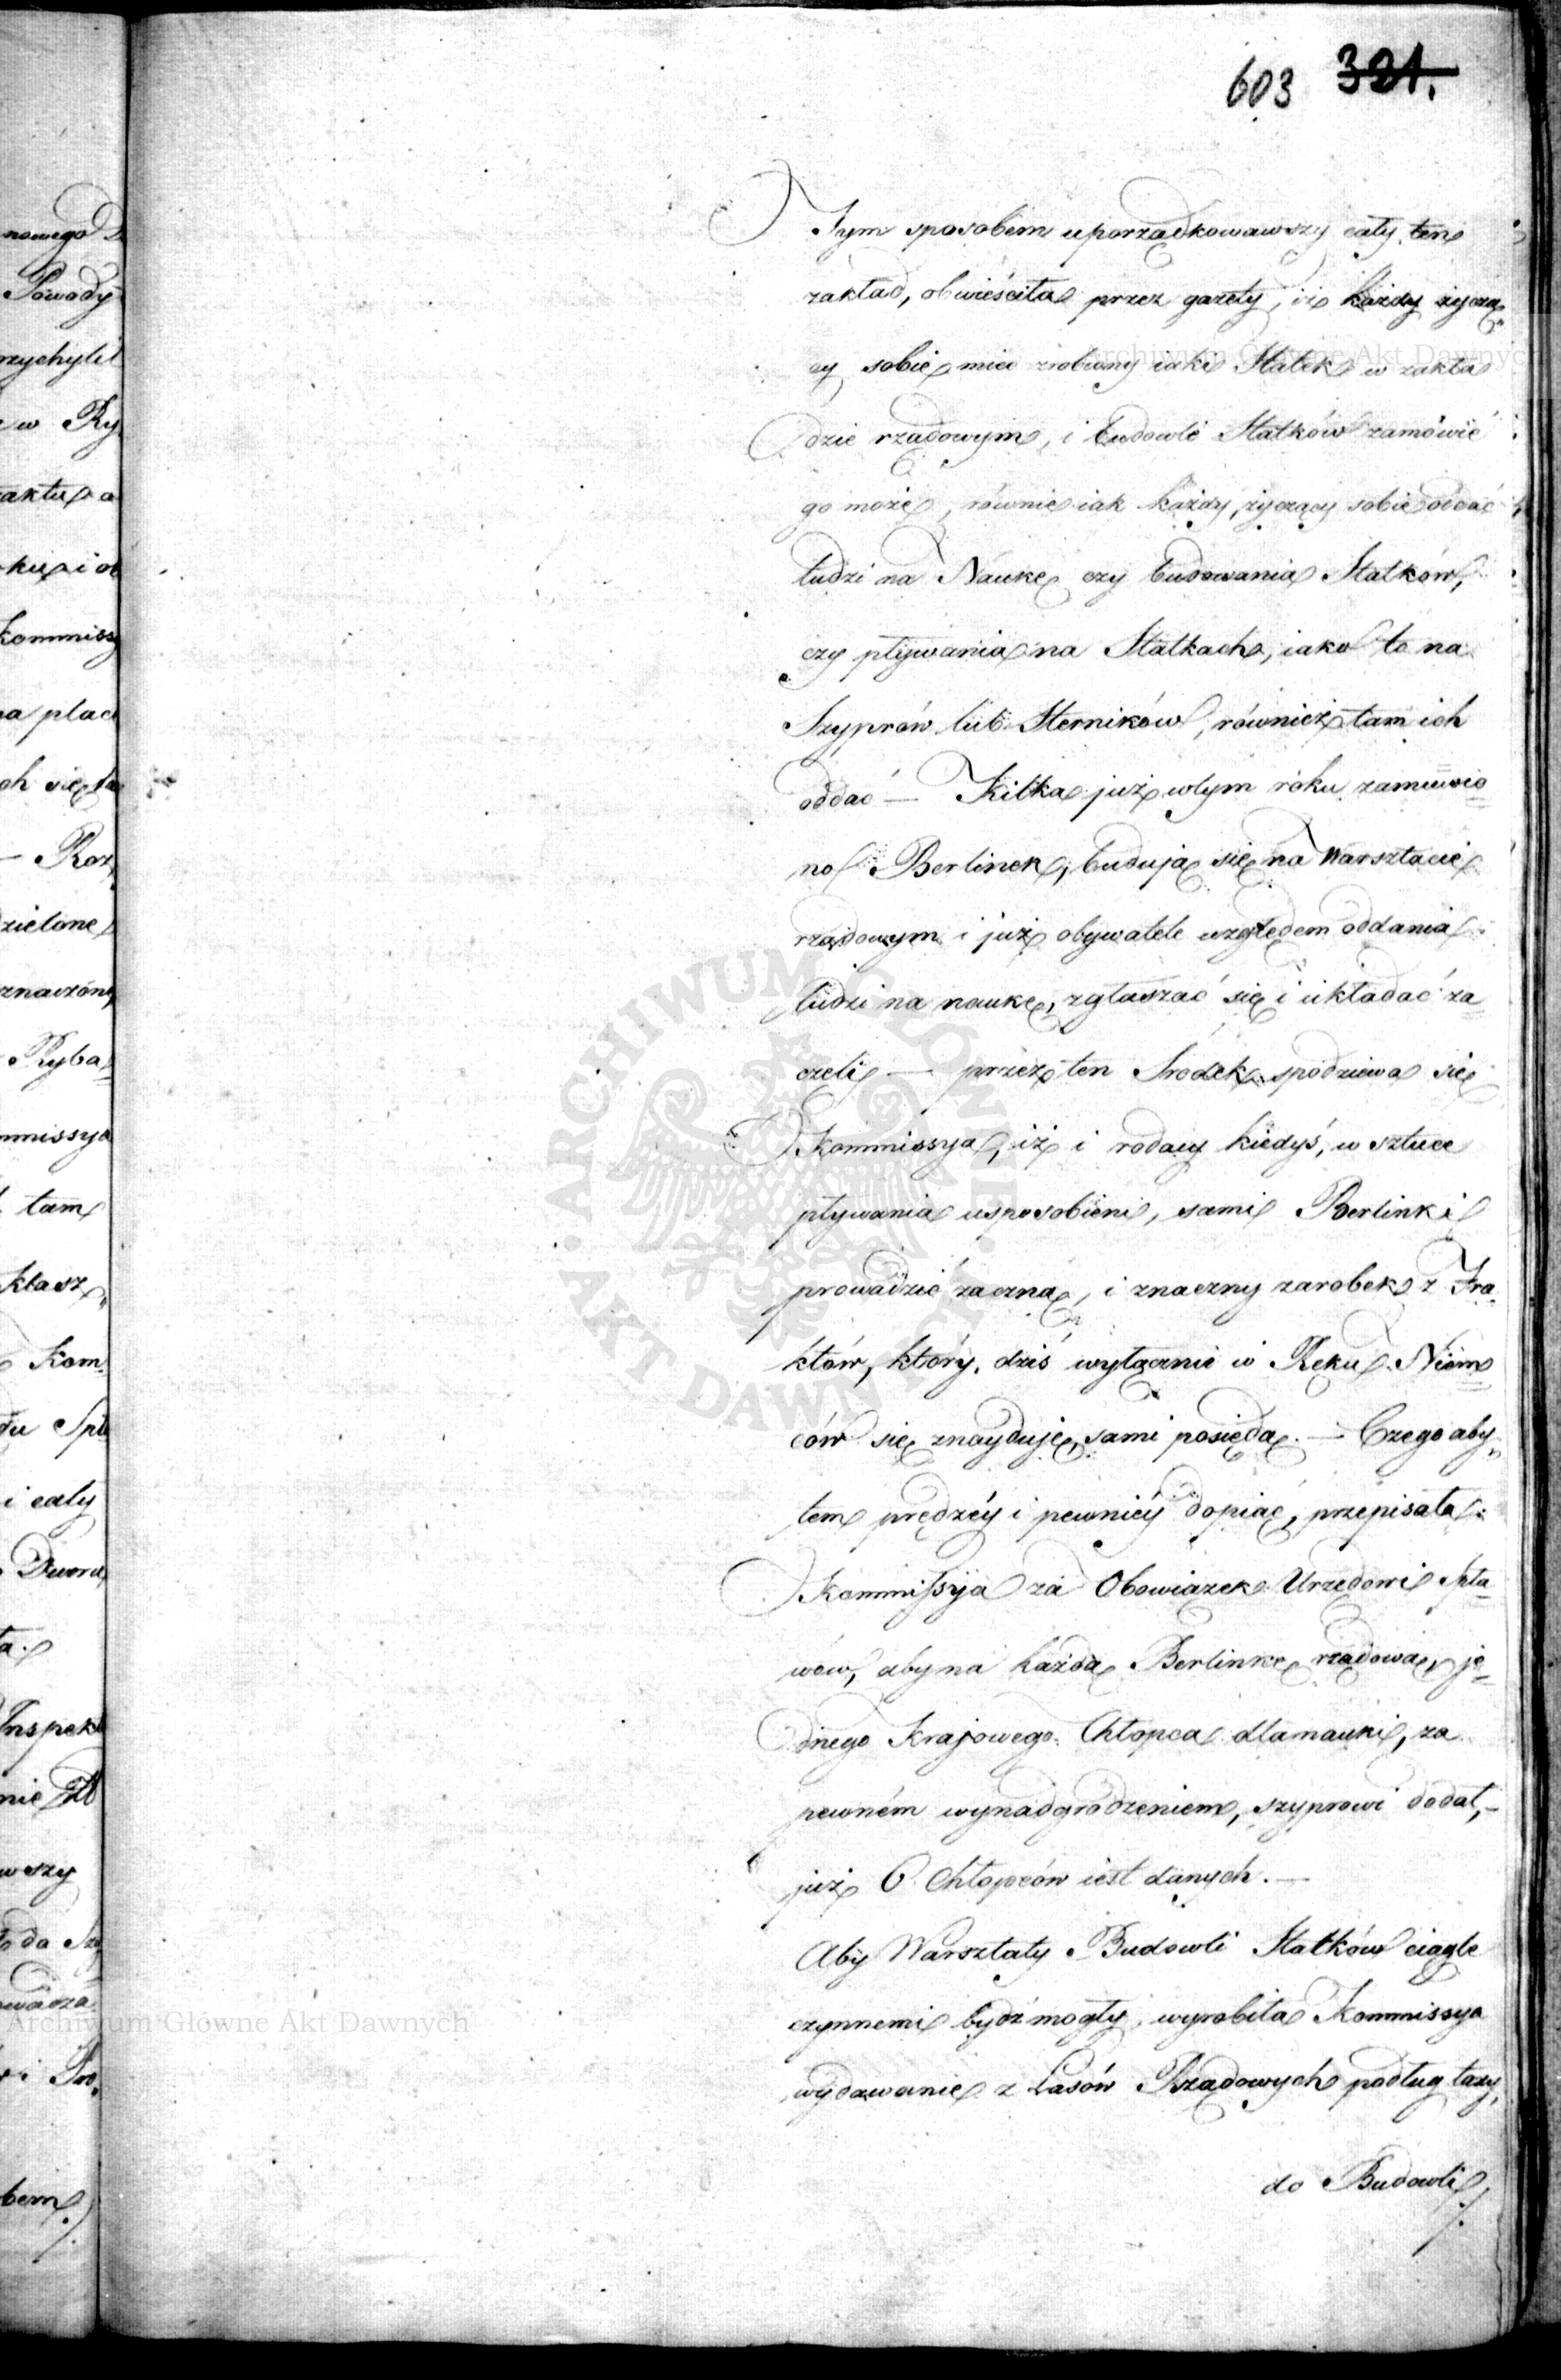 603 321.
Tym sposobem uporządkowawszy cały ten
zakład, obwieściła przez gazety, iż każdy życzą„
cy sobie mieć zrobiony iaki Statek w zakła
dzie rządowym, i budowli Statków zamówić
go może, równie iak każdy, życzący sobie oddać
ludzi na Naukę czy budowania Statków,
czy pływania na Statkach, iako to na
Szyprów lub Sterników, również tam ich
oddać — Kilka już wtym roku zamuwio=
no Berlinek, budują się na Warsztacie
rządowym i już obywatele względem oddania
ludzi na naukę, zgłaszać się i układać za=
czeli — przez ten Srodek spodziewa się
Kommissya, iż i rodacy kiedyś, w sztuce
pływania usposobieni, sami Berlinki
prowadzić zaczną, i znaczny zarobek z Fra=
któw, który, dziś wyłącznie w Ręku Niem=
ców się znayduje, sami posiędą. — Czego aby„
tem prędzéy i pewniéy dopiąć, przepisała
Kommissyja za Obowiązek Urzędowi Spła=
wów, aby na każdą Berlinkę rządową, je=
dnego Krajowego Chłopca dla nauki, za
pewném wynadgrodzeniem, szyprowi dodał,—
już 6 Chłopców iest danych. —
Aby Warsztaty Budowli Statków ciągle
czynnemi bydź mogły, wyrobiła Kommissya
wydawanie z Lasów Rządowych podług taxy,
do Budowli
nowego
Powody
rzychylił
w Ry
aktu a
Kommiss
na plac
ch się
— Roz„
dzielone
znaczón
Ryba=
mmissya
tam
Klasz„
Kom=
i cały
Dworu
ta.
Inspek
nie
wszy
bem
Archiwum Główne Akt Dawnych
Archiwum Główne Akt Dawnych
ARCHIWUM GŁÓWNE · AKT DAWNYCH ·